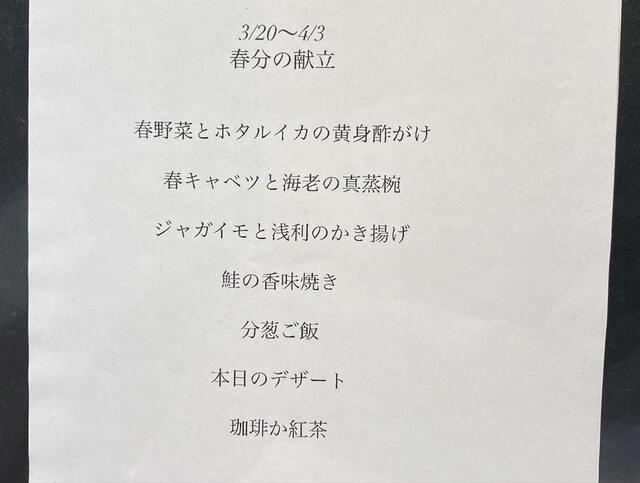 3/20〜4/3
春分の献立
春野菜とホタルイカの黄身酢がけ
春キャベツと海老の真蒸椀
ジャガイモと浅利のかき揚げ
鮭の香味焼き
分葱ご飯
本日のデザート
珈琲か紅茶